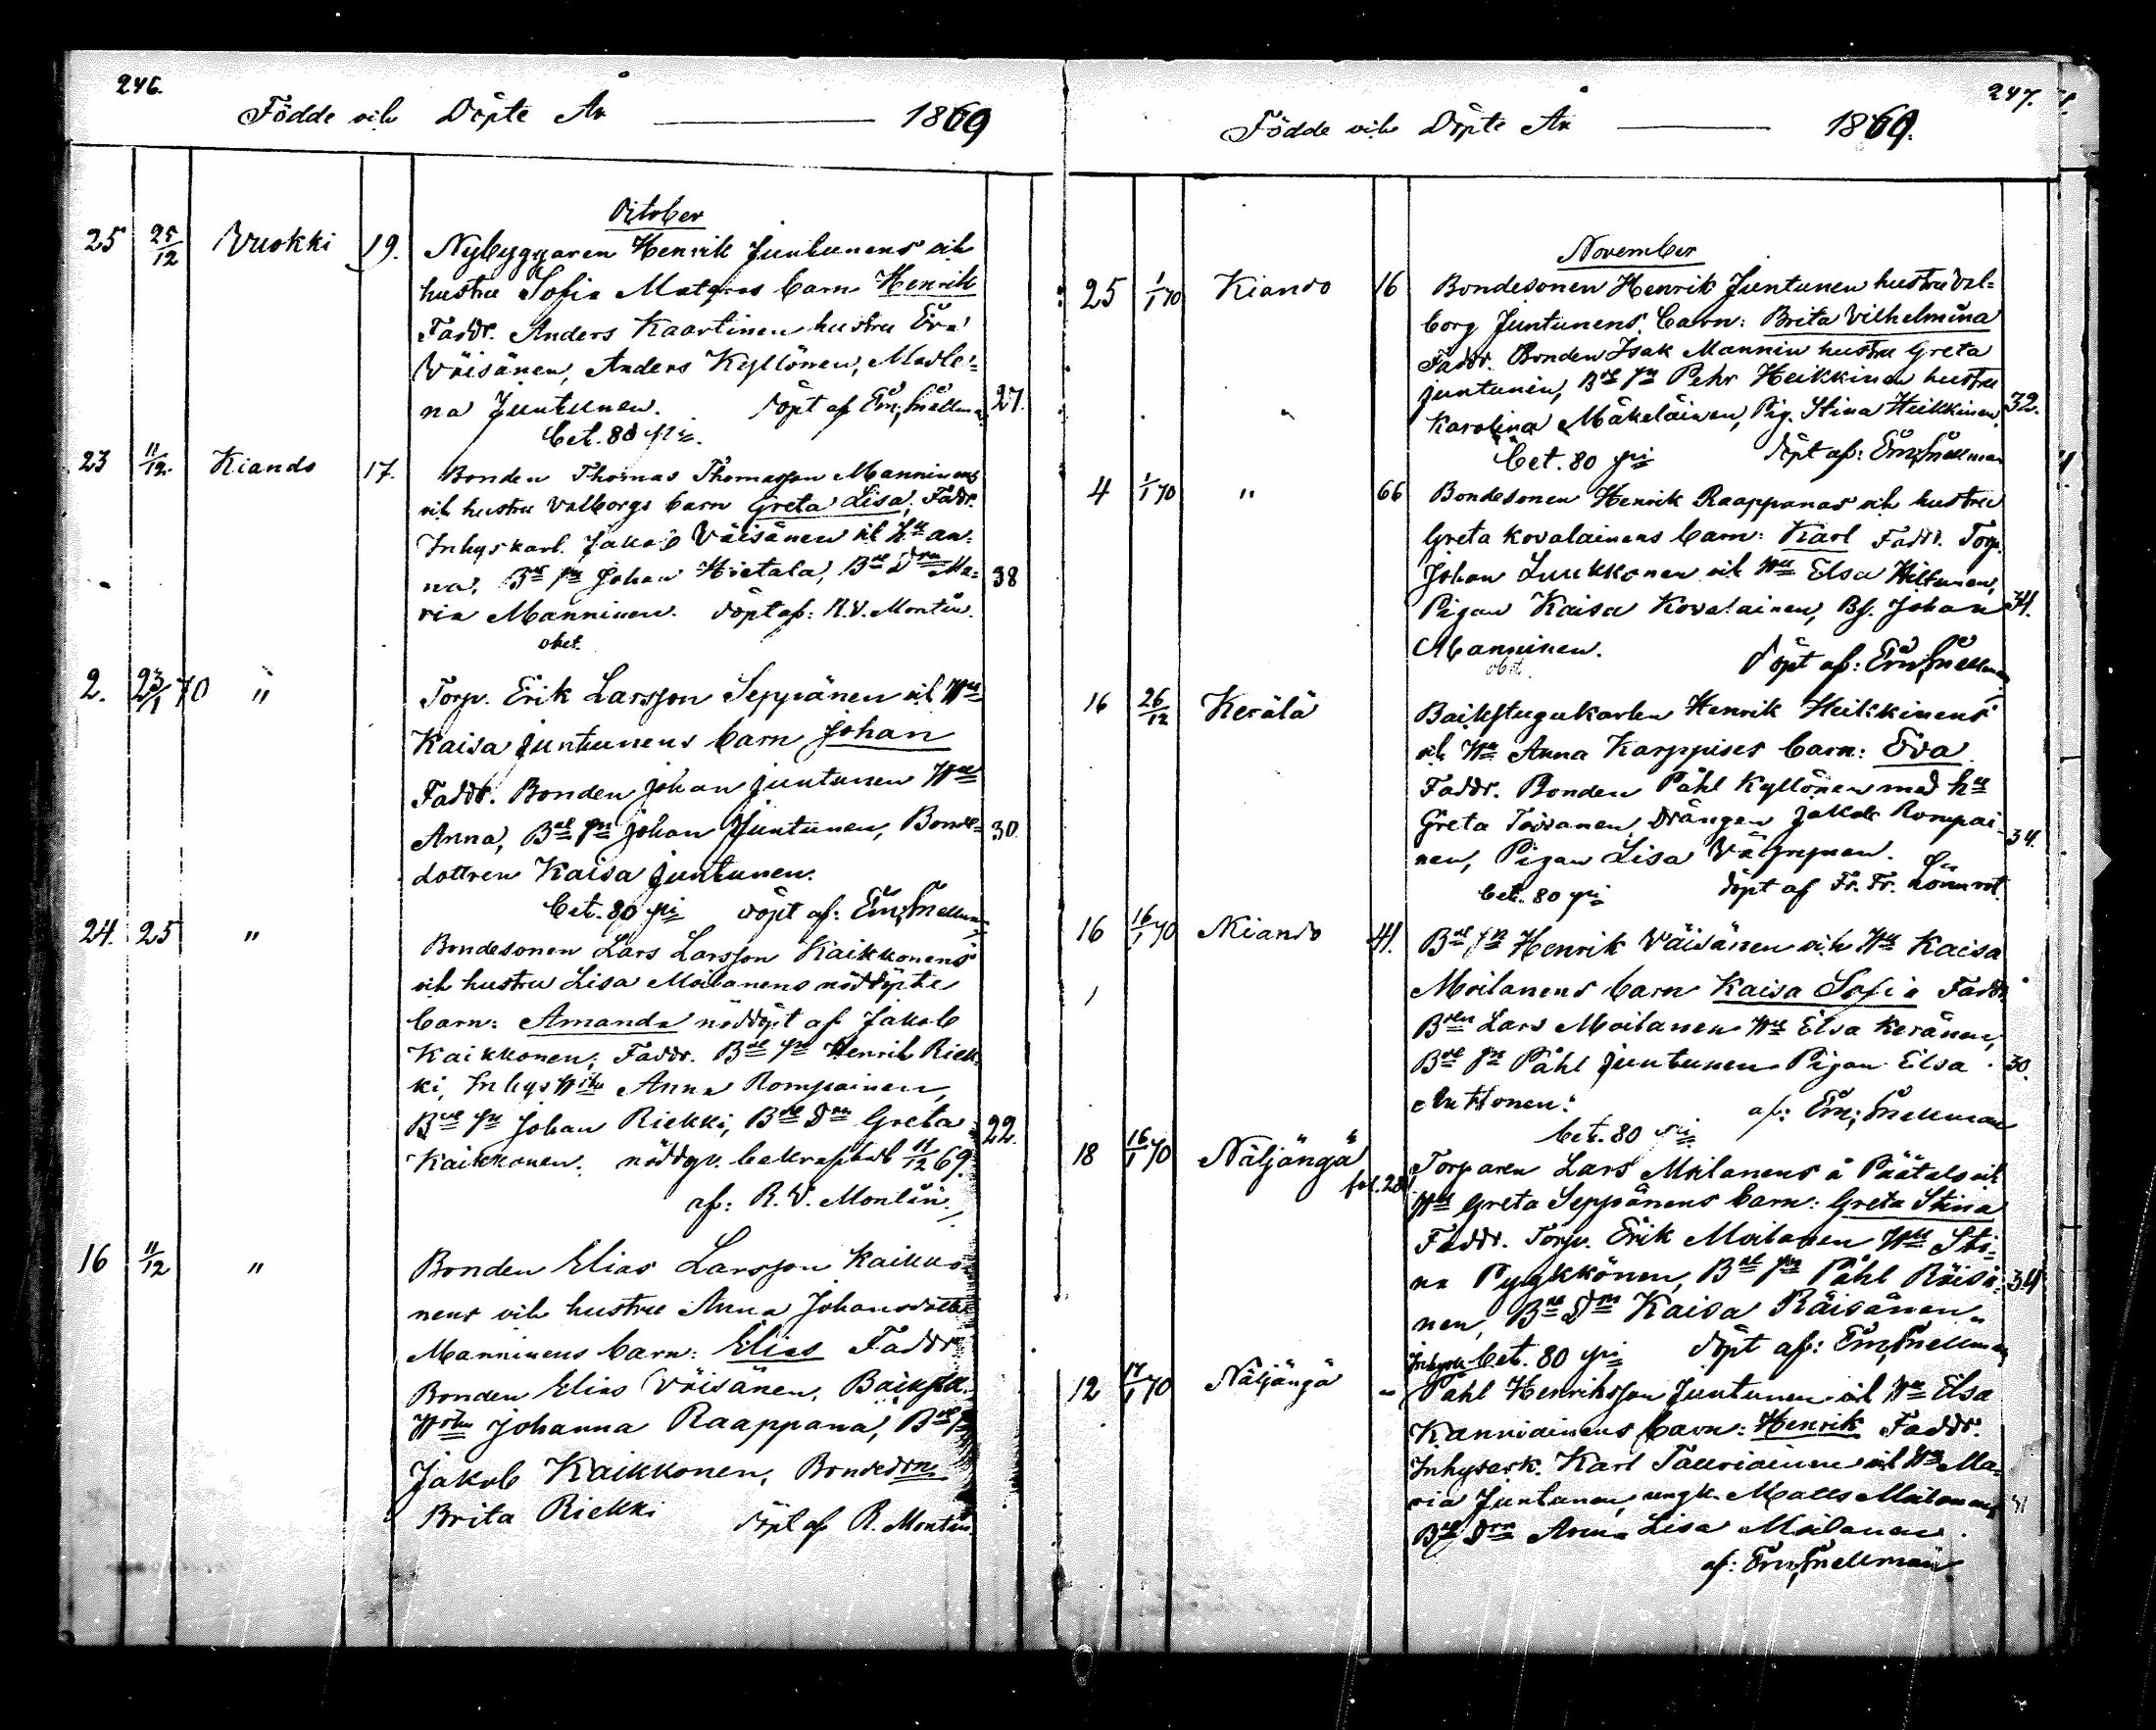 246.
Födde och Döpte År 1869
October
25 25/12 Vuokki 19. Nybyggaren Henrik Juntunens och
hustru Sofia Matgr:s barn Henrik
Faddr. Anders Kaartinen hustru Eva
Väisänen, Anders Kyllönen, Madle-
na Juntunen. döpt af Em. Snellman 27.
bet. 80 pi
23 11/12. Kiando 17. Bonden Thomas Thomasson Manninens
och hustru Valborgs barn Greta Lisa, Faddr.
Inhyskarl. Jakob Väisänen och hu an-
na, Bde sn Johan Hietala, Bde Drn Ma- 38
ria Manninen. döpt af: R. V. Montin.
obet.
2. 23/1 70 " Torp. Erik Larsson Seppänen och Hu
Kaisa Juntunens barn Johan
Faddr. Bonden Johan Juntunen Hu
Anna, Bde sn Johan Juntunen, Bonde- 30
dottren Kaisa Juntunen.
bet. 80 pi döpt af: Em. Snellman
24. 25 " Bondesonen Lars Larsson Kaikkonens
och hustru Lisa Moilanens nöddöpte
barn: Amanda nöddöpt af Jakob
Kaikkonen; Faddr. Bde sn Henrik Riek-
ki, Inhys Anna Rompainen,
Bde sn Johan Riekki, Bde Dm Greta 22.
Kaikkonen. nöddop. bekräftadt 11/12 69.
af: R. V. Montin.
16 11/12 " Bonden Elias Larsson Kaikko-
nens och hustru Anna Johansdotter
Manninens barn: Elias Faddr
Bonden Elias Väisänen,
Johanna Raappana, Bde sn
Jakob Kaikkonen, Bondedrn
Brita Riekki döpt af R. Montin.
247.
Födde och Döpte År 1869.
November
25 1/1 70 Kiando 16 Bondesonen Henrik Juntunen hustru Val-
borg Juntunens barn: Brita Vilhelmina
Faddr. Bonden Isak Mannin hustru Greta
juntunin, Bde sn Pehr Heikkinen hustru
Karolina Mäkeläinen, Pig. Stina Heikkinen 32.
bet. 80 pi döpt af: Em. Snellman
4 1/1 70 " 66 Bondesonen Henrik Raappanas och hustru
Greta Kovalainens barn: Karl Faddr. Torp.
Johan Luukkonen och Hu Elsa Hiltunen,
Pigan Kaisa Kovalainen, Bs. Johan 34.
Manninen.
obet. döpt af: Em. Snellman
16 26/12 Kerälä Backstugukarlen Henrik Heikkinens
och Hu Anna Karppises barn: Eva
Faddr. Bonden Påhl Kyllönen med hu
Greta Toivanen, Drängen Jakob Rompai- 34.
nen, Pigan Lisa Väyrynen.
bet. 80 pi döpt af Fr. Fr. Lönnrot.
16 16/1 70 Kiando 41. Bde sn Henrik Väisänen och Hu Kaisa
Moilanens barn Kaisa Sofia Faddr
Bden Lars Moilanen Hu Elsa Keränen,
Bde sn Påhl Juntunen Pigan Elsa 30.
Anttonen.
bet. 80 pi af: Em. Snellman
18 16/1 70 Näljängä Torparen Lars Moilanens å Päätalo och
Hu Greta Seppänens barn: Greta Stina
Faddr. Torp. Erik Moilanen Hu Sti-
na Pyykkönen, Bde sn Påhl Räisä- 34
nen, Bde Dm Kaisa Räisänen
bet. 80 pi döpt af: Em. Snellman
12 17/1 70 Näljängä " Inhysk. Påhl Henriksson Juntunen och Hu Elsa
Kanniainens barn: Henrik Faddr.
Karl Tauriainen och Hu Ma-
ria Juntunen, ungk. Matts Moilanen,
Bde Drn Anna Lisa Moilanen.
af: Em. Snellman